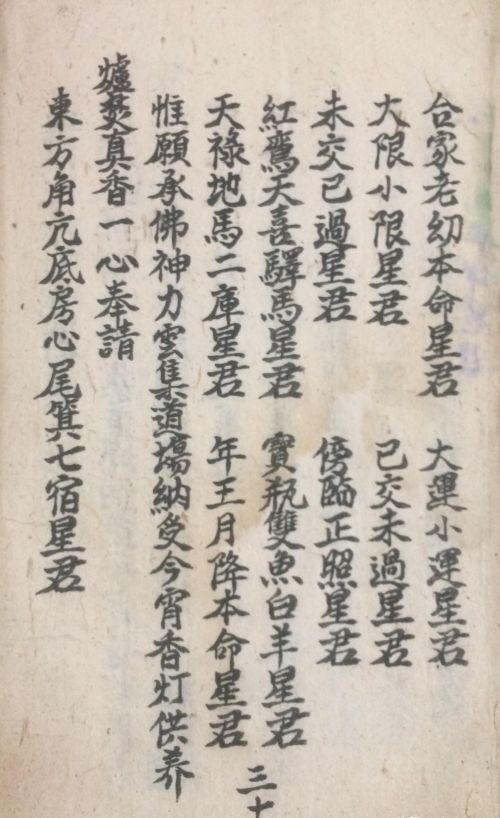 合家老幼本命星君　大運小運星君
大限小限星君　已交未過星君
未交已過星君　傍臨正照星君
紅鸞天喜驛馬星君　寶瓶雙魚白羊星君
天祿地馬二庫星君　年王月降本命星君
惟願承佛神力雲集道場納受今宵香灯供养
爐焚真香一心奉請
東方角亢底房心尾箕七宿星君
三十